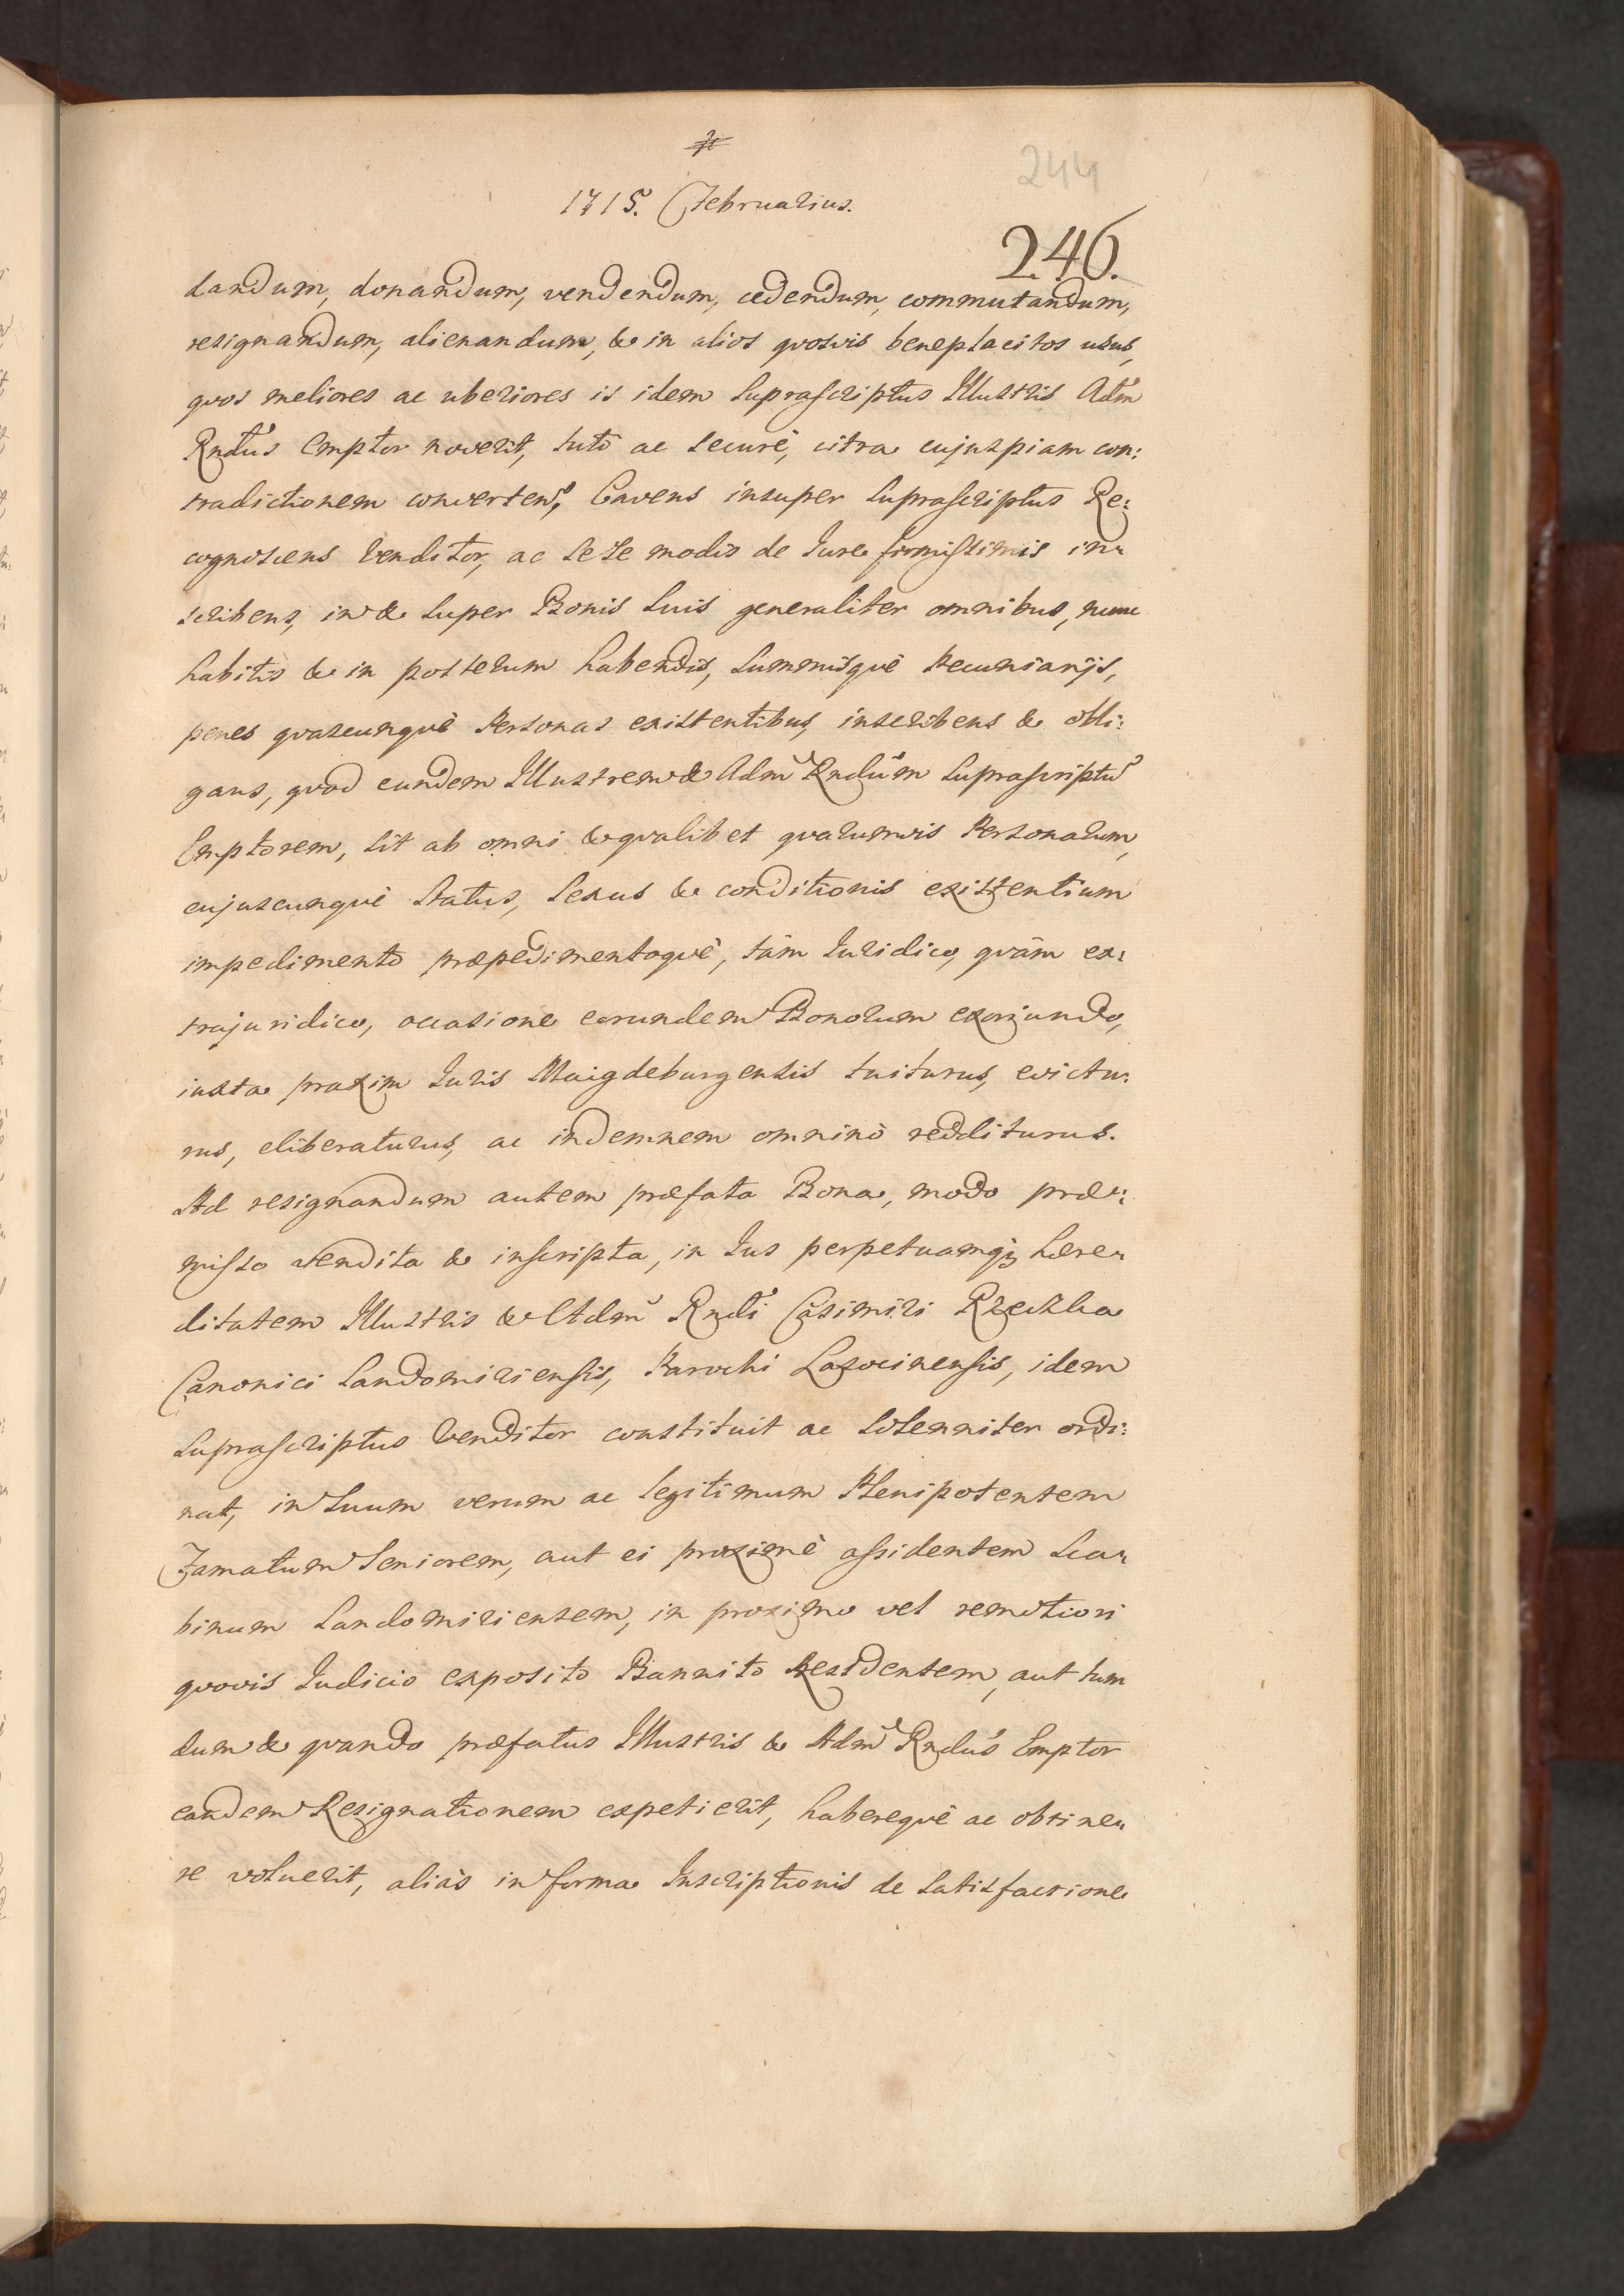 244
1715. Februarius.
246.
dandum, donandum, vendendum, cedendum, commutandum,
resignandum, alienandum, & in alios quosvis beneplacitos usus,
quos meliores ac uberiores is idem Suprascriptus Illustris Adm̃
Rndũs Emptor noverit, tutò ac securè, citra cujuspiam con:
tradictionem converten̄, Cavens insuper Suprascriptus Re:
cognoscens Venditor, ac sese modis de Jure firmissimis in:
scribens, in & super Bonis suis generaliter omnibus, nunc
habitis & in posterum habendis, Summisquè Pecuniarijs,
penes quascunquè Personas existentibus, inscribens & obli:
gans, quod eundem Illustrem & Adm̃ Rndũm Suprascriptũ
Emptorem, sit ab omni & qualibet quarumvis Personarum,
cujuscunquè Status, Sexus & conditionis existentium
impedimento præpedimentoquè, tàm Juridico, quàm ex:
trajuridico, occasione eorundem Bonorum exorjundo,
iuxta praxim Juris Maigdeburgensis tuiturus, evictu:
rus, eliberaturus, ac indemnem omninò redditurus.
Ad resignandum autem præfata Bona, modo præ:
misso vendita & inscripta, in Jus perpetuamq̃ hære:
ditatem Illustris & Adm̃ Rndĩ Casimiri Rzeczka
Canonici Sandomiriensis, Parochi Lasocinensis, idem
Suprascriptus Venditor constituit ac Solenniter ordi:
nat, in Suum verum ac legitimum Plenipotentem
Famatum Seniorem, aut ei proximè assidentem Sca:
binum Sandomiriensem, in proximo vel remotiori
quovis Judicio exposito Bannito Residentem, aut tum
dum & quando præfatus Illustris & Adm̃ Rndũs Emptor
eandem Resignationem expetierit, haberequè ac obtine:
re voluerit, aliàs in forma Inscriptionis de Satisfactione